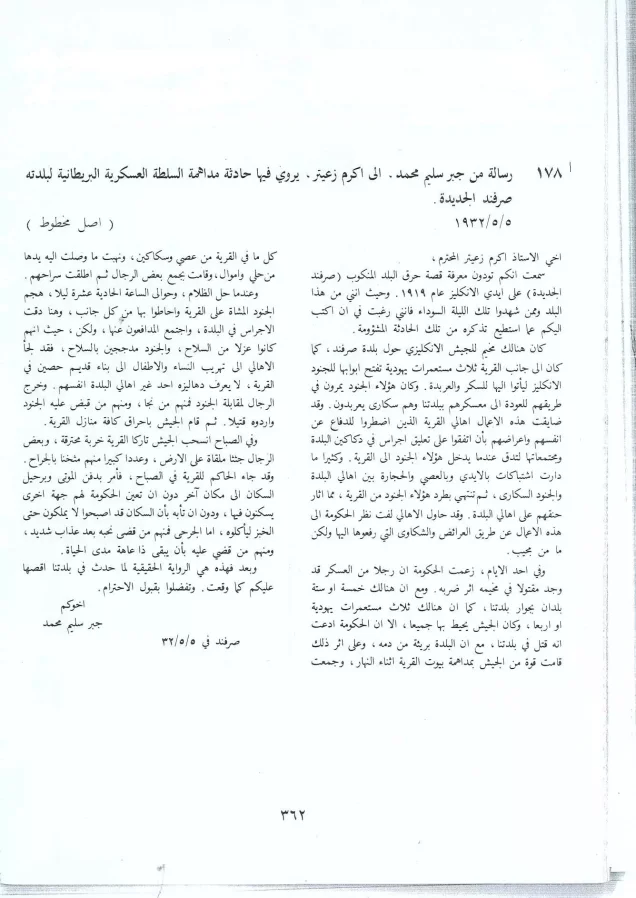 ١٧٨ رسالة من جبر سليم محمد. الى اكرم زعيتر، يروي فيها حادثة مداهمة السلطة العسكرية البريطانية لبلدته
صرفند الجديدة.
١٩٣٢/٥/٥
( اصل مخطوط )
اخي الاستاذ اكرم زعيتر المحترم،
سمعت انكم تودون معرفة قصة حرق البلد المنكوب (صرفند
الجديدة) على ايدي الانكليز عام ١٩١٩. وحيث انني من هذا
البلد وممن شهدوا تلك الليلة السوداء فانني رغبت في ان اكتب
اليكم عما استطيع تذكره من تلك الحادثة المشؤومة.
كان هنالك مخيم للجيش الانكليزي حول بلدة صرفند، كما
كان الى جانب القرية ثلاث مستعمرات يهودية تفتح ابوابها للجنود
الانكليز ليأتوا اليها للسكر والعربدة. وكان هؤلاء الجنود يمرون في
طريقهم للعودة الى معسكرهم ببلدتنا وهم سكارى يعربدون. وقد
ضايقت هذه الاعمال اهالي القرية الذين اضطروا للدفاع عن
انفسهم واعراضهم بأن اتفقوا على تعليق اجراس في دكاكين البلدة
ومجتمعاتها لتدق عندما يدخل هؤلاء الجنود الى القرية. وكثيرا ما
دارت اشتباكات بالايدي وبالعصي والحجارة بين اهالي البلدة
والجنود السكارى، ثم تنتهي بطرد هؤلاء الجنود من القرية، مما اثار
حنقهم على اهالي البلدة. وقد حاول الاهالي لفت نظر الحكومة الى
هذه الاعمال عن طريق العرائض والشكاوى التي رفعوها اليها ولكن
ما من مجيب.
وفي احد الايام، زعمت الحكومة ان رجلا من العسكر قد
وجد مقتولا في مخيمه اثر ضربه. ومع ان هنالك خمسة او ستة
بلدان بجوار بلدتنا، كما ان هنالك ثلاث مستعمرات يهودية
او اربعا، وكان الجيش يحيط بها جميعا، الا ان الحكومة ادعت
انه قتل في بلدتنا، مع ان البلدة بريئة من دمه، وعلى اثر ذلك
قامت قوة من الجيش بمداهمة بيوت القرية اثناء النهار، وجمعت
كل ما في القرية من عصي وسكاكين، ونهبت ما وصلت اليه يدها
من حلي واموال، وقامت بجمع بعض الرجال ثم اطلقت سراحهم.
وعندما حل الظلام، وحوالى الساعة الحادية عشرة ليلا، هجم
الجنود المشاة على القرية واحاطوا بها من كل جانب، وهنا دقت
الاجراس في البلدة، واجتمع المدافعون عنها، ولكن، حيث انهم
كانوا عزلا من السلاح، والجنود مدججين بالسلاح، فقد لجأ
الاهالي الى تهريب النساء والاطفال الى بناء قديم حصين في
القرية، لا يعرف دهاليزه احد غير اهالي البلدة انفسهم. وخرج
الرجال لمقابلة الجنود فمنهم من نجا، ومنهم من قبض عليه الجنود
واردوه قتيلا. ثم قام الجيش باحراق كافة منازل القرية.
وفي الصباح انسحب الجيش تاركا القرية خربة محترقة، وبعض
الرجال جثثا ملقاة على الارض، وعددا كبيرا منهم مثخنا بالجراح.
وقد جاء الحاكم للقرية في الصباح، فأمر بدفن الموتى وبرحيل
السكان الى مكان آخر دون ان تعين الحكومة لهم جهة اخرى
يسكنون فيها، ودون ان تأبه بأن السكان قد اصبحوا لا يملكون حتى
الخبز ليأكلوه، اما الجرحى فمنهم من قضى نحبه بعد عذاب شديد،
ومنهم من قضي عليه بأن يبقى ذا عاهة مدى الحياة.
وبعد فهذه هي الرواية الحقيقية لما حدث في بلدتنا اقصها
عليكم كما وقعت. وتفضلوا بقبول الاحترام.
اخوكم
جبر سليم محمد
صرفند في ٣٢/٥/٥
٣٦٢